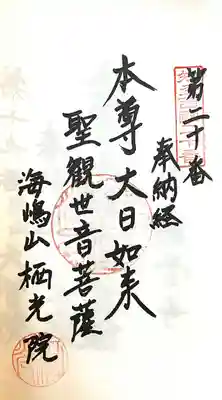 第二十番
奉納経
本尊 大日如来
聖観世音菩薩
海嶋山 栖光院